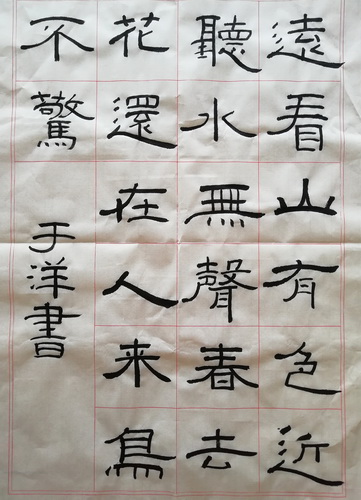 遠看山有色近
聽水無聲春去
花還在人来鳥
不驚
于洋書